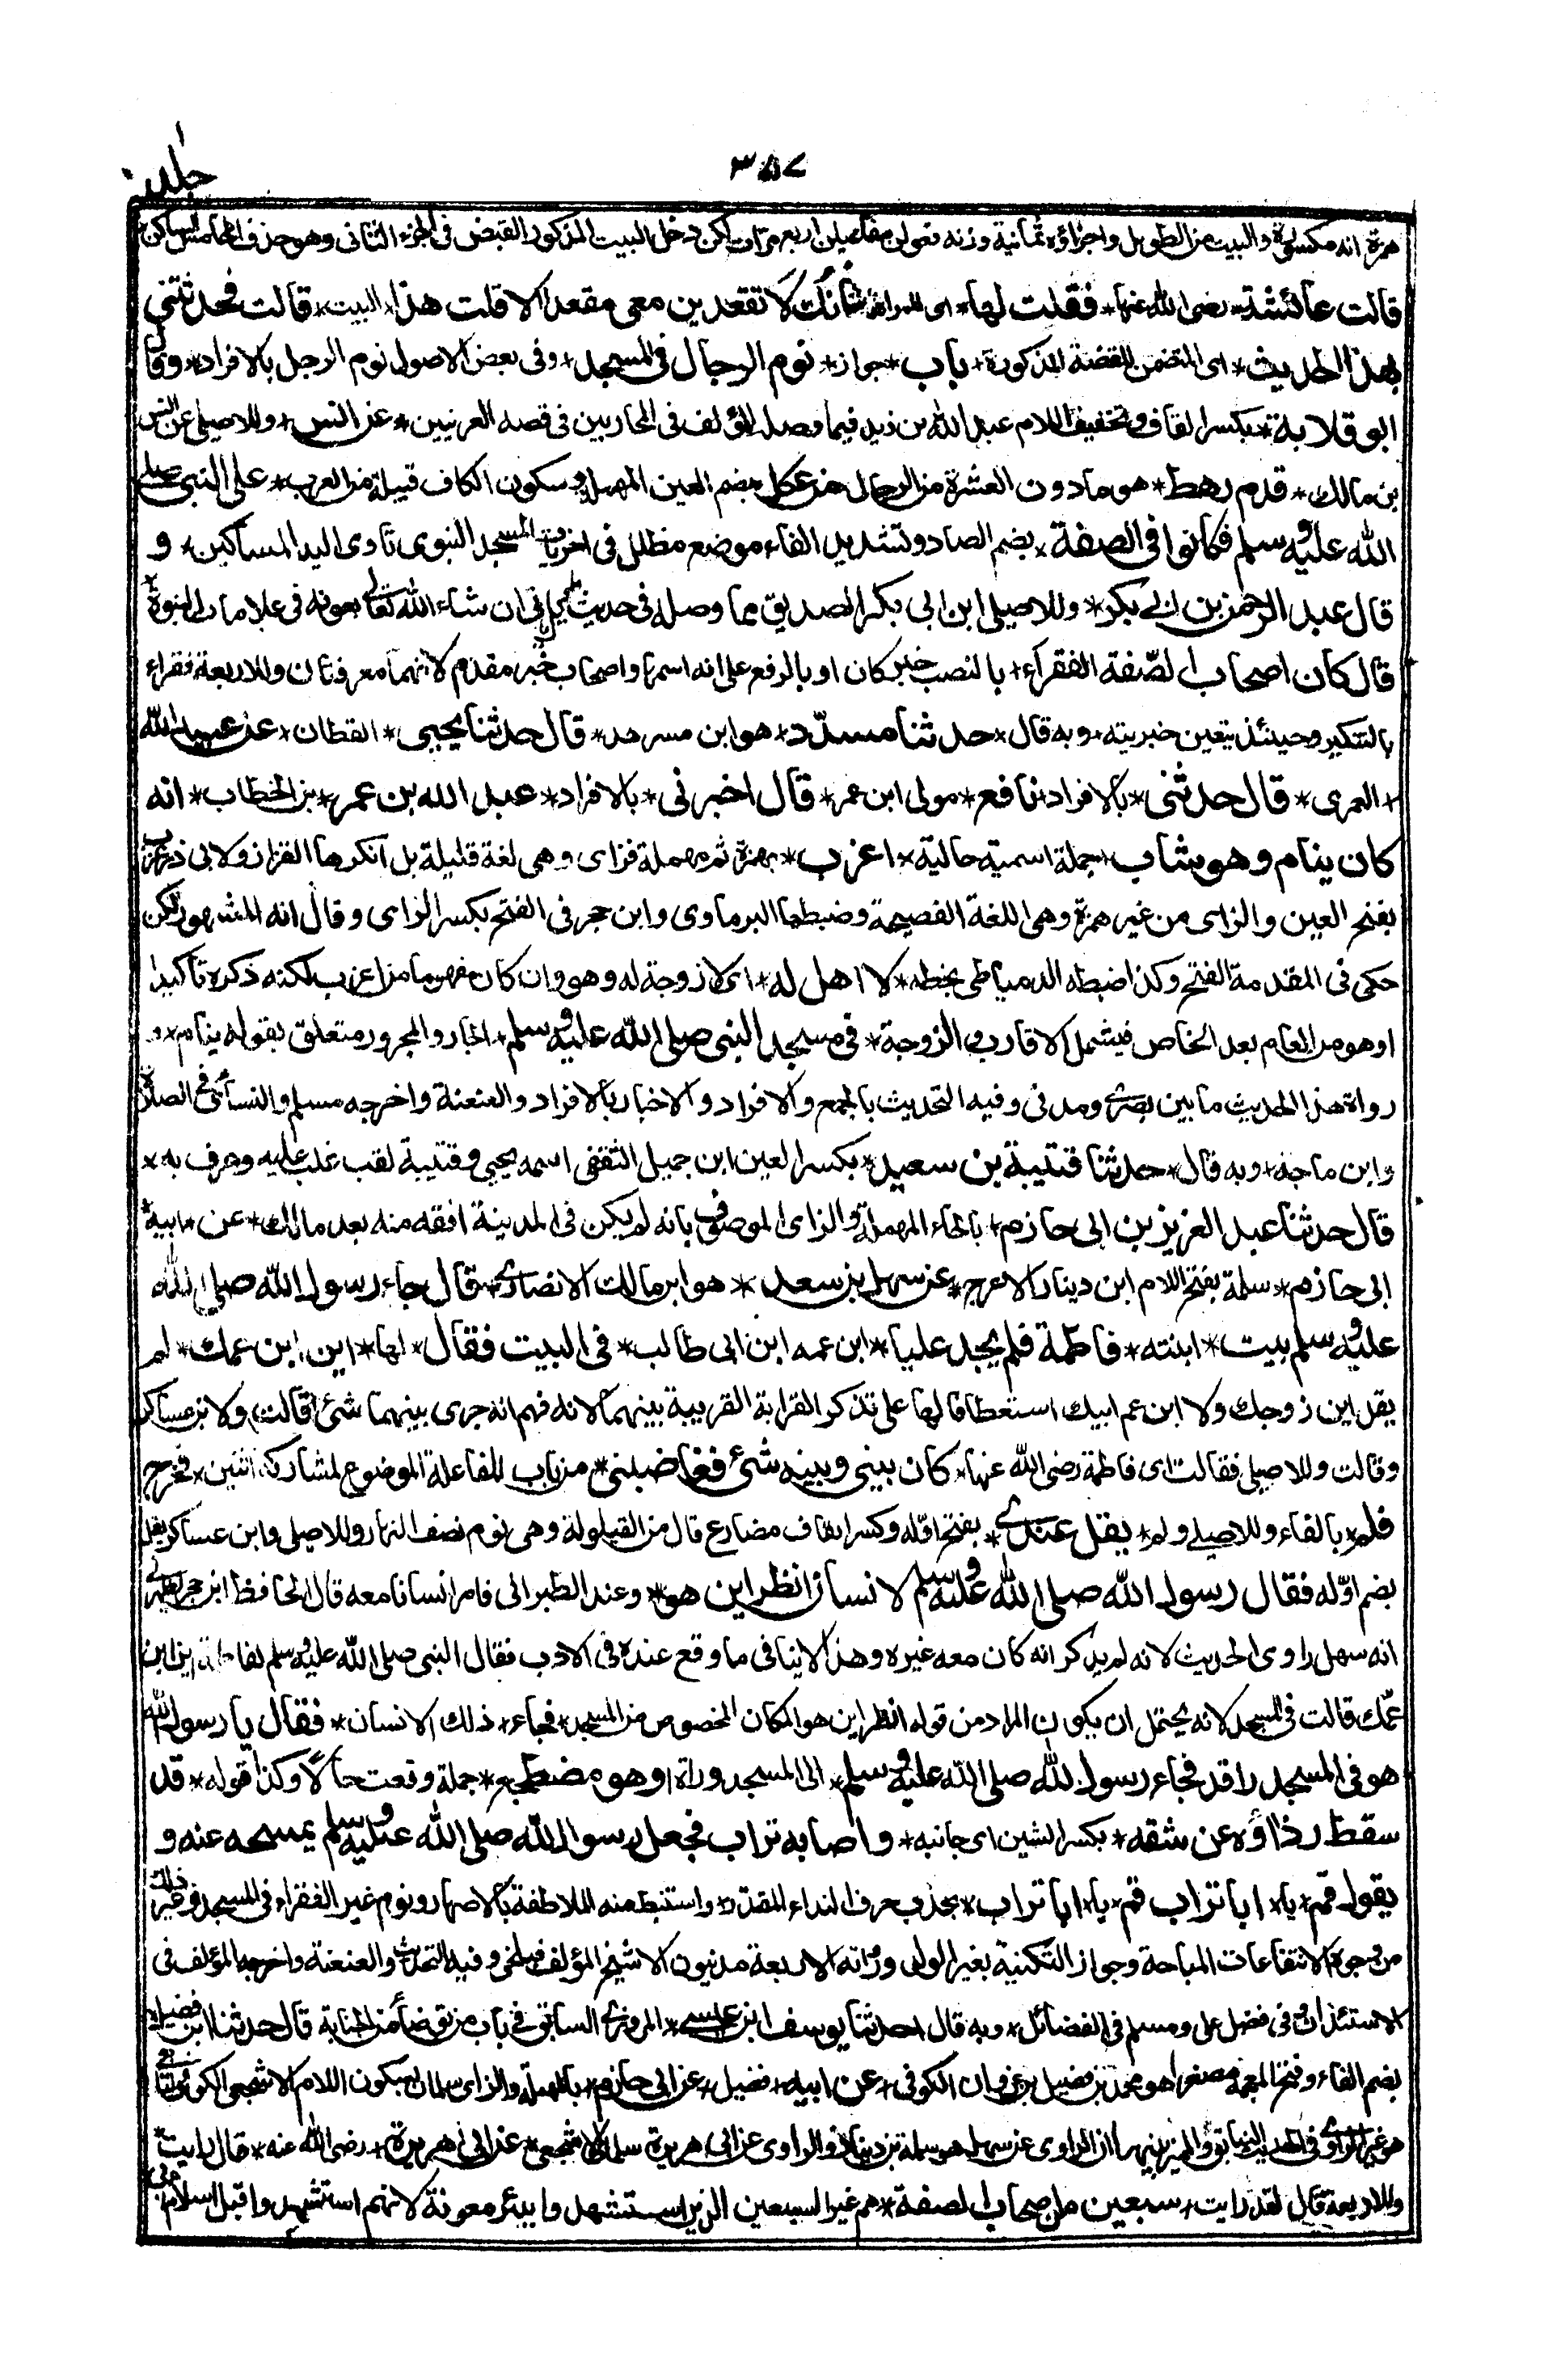 ٣٥٧
جلد ١
همزة انه مكسورة والبيت من الطويل واجزاؤه ثمانية وزنه فعولن مفاعيلن اربع مرات لكن دخل البيت المذكور القبض فى الجزء الثانى وهو حذف الخامس الساكن
قالت عائشة* رضى الله عنها* فقلت لها* اى للمرأة* ما شأنك لا تقعدين معى مقعدا الا قلت هذا* البيت* قالت فحدثتنى
بهذا الحديث* اى المتضمن للقصة المذكورة* باب* جواز* نوم الرجال فى المسجد* وفى بعض الاصول نوم الرجل بالافراد* وقال
ابو قلابة* بكسر القاف وتخفيف اللام عبد الله بن زيد فيما وصله المؤلف فى المحاربين فى قصه العرنيين* عن انس* وللاصيلى عن انس
بن مالك* قدم رهط* هو ما دون العشرة من الرجال من عكل بضم العين المهملة وسكون الكاف قبيلة من العرب* على النبى صلى
الله عليه وسلم فكانوا فى الصفة* بضم الصاد وتشديد الفاء موضع مظلل فى اخريات المسجد النبوى تاوى اليه المساكين* و
قال عبد الرحمن بن ابى بكر* وللاصيلى ابن ابى بكر الصديق مما وصله فى حديث طويل ياتى ان شاء الله تعالى بعونه فى علامات النبوة*
قال كان اصحاب الصّفة الفقراء* بالنصب خبر كان او بالرفع على انه اسمها واصحاب خبر مقدم لانهما معرفتان وللاربعة فقراء
بالتنكير وحينئذ يتعين خبريته* وبه قال* حدثنا مسدّد* هو ابن مسرهد* قال حدثنا يحيى* القطان* عن عبيد الله
* العمرى* قال حدثنى* بالافراد* نافع* مولى ابن عمر* قال اخبرنى* بالافراد* عبد الله بن عمر* بن الخطاب* انه
كان ينام وهو شاب* جملة اسمية حالية* اعزب* بهمزة ثم مهملة فزاى وهى لغة قليلة بل انكرها القزاز ولابى ذر عزب
بفتح العين والزاى من غير همزة وهى اللغة الفصيحة وضبطها البرماوى وابن حجر فى الفتح بكسر الزاى وقال انه المشهور لكن
حكى فى المقدمة الفتح وكذا ضبطه الدمياطى بخطه* لا اهل له* اى لا زوجة له وهو وان كان مفهوما من اعزب لكنه ذكره تاكيدا
او هو من العام بعد الخاص فيشمل الاقارب والزوجة* فى مسجد النبى صلى الله عليه وسلم* الجار والمجرور متعلق بقوله ينام* و
رواة هذا الحديث ما بين بصرى ومدنى وفيه التحديث بالجمع والافراد والاخبار بالافراد والعنعنة واخرجه مسلم والنسائى فى الصلاة
وابن ماجه* وبه قال* حدثنا قتيبة بن سعيد* بكسر العين ابن جميل الثقفى اسمه يحيى وقتيبة لقب غلب عليه وعرف به*
قال حدثنا عبد العزيز بن ابى حازم* بالحاء المهملة والزاى الموصوف بانه لم يكن فى المدينة افقه منه بعد مالك* عن* ابيه*
ابى حازم* سلمة بفتح اللام ابن دينار الاعرج* عن سهل بن سعد* هو ابن مالك الانصارى* قال جاء رسول الله صلى الله
عليه وسلم بيت* ابنته* فاطمة فلم يجد عليا* ابن عمه ابن ابى طالب* فى البيت فقال* لها* اين ابن عمك* لم
يقل اين زوجك ولا ابن عم ابيك استعطافا لها على تذكر القرابة القريبة بينهما لانه فهم انه جرى بينهما شئ* قالت* ولابن عساكر
وقالت وللاصيلى فقالت اى فاطمة رضى الله عنها* كان بينى وبينه شئ فغاضبنى* من باب المفاعلة الموضوع لمشاركة اثنين* فخرج
فلم* بالفاء وللاصيلى ولم* يقل عندى* بفتح اوّله وكسر القاف مضارع قال من القيلولة وهى نوم نصف النهار وللاصيلى وابن عساكر يقل
بضم اوّله فقال رسول الله صلى الله عليه وسلم لانسان انظر اين هو* وعند الطبرانى فامر انسانا معه قال الحافظ ابن حجر يظهر لى
انه سهل راوى الحديث لانه لم يذكر انه كان معه غيره وهذا لا ينافى ما وقع عنده فى الادب فقال النبى صلى الله عليه وسلم لفاطمة اين ابن
عمّك قالت فى المسجد لانه يحتمل ان يكون المراد من قوله انظر اين هو المكان المخصوص من المسجد* فجاء* ذلك الانسان* فقال يا رسول الله
هو فى المسجد راقد فجاء رسول الله صلى الله عليه وسلم* الى المسجد ورآه* وهو مضطجع* جملة وقعت حالا وكذا قوله* قد
سقط رداؤه عن شقه* بكسر الشين اى جانبه* واصابه تراب فجعل رسول الله صلى الله عليه وسلم يمسحه عنه و
يقول قم* يا* ابا تراب قم* يا* ابا تراب* بحذف حرف النداء المقدّر* واستنبط منه الملاطفة بالاصهار ونوم غير الفقراء فى المسجد وغير ذلك
من وجوه الانتفاعات المباحة وجواز التكنية بغير الولد ورواته الاربعة مدنيون الا شيخ المؤلف فبلخى وفيه التحديث والعنعنة واخرجه المؤلف فى
الاستئذان وفى فضل على ومسلم فى الفضائل* وبه قال* حدثنا يوسف ابن عيسى* المروزى السابق فى باب من توضأ من الجنابة* قال حدثنا ابن فضيل*
بضم الفاء وفتح المعجمة مصغرا هو محمد بن فضيل بن غزوان الكوفى* عن ابيه* فضيل* عن ابى حازم* بالمهملة والزاى سلمان بسكون اللام الاشجعى الكوفى
هو غير الراوى فى الحديث السابق والمميز بينهما ان الراوى عن سهل هو سلمة بن دينار والراوى عن ابى هريرة سلمان الاشجعى* عن ابى هريرة* رضى الله عنه* قال رايت*
وللاربعة قال لقد رايت* سبعين من اصحاب الصفة* هم غير السبعين الذين استشهدوا ببئر معونة لانهم استشهدوا قبل اسلام ابى